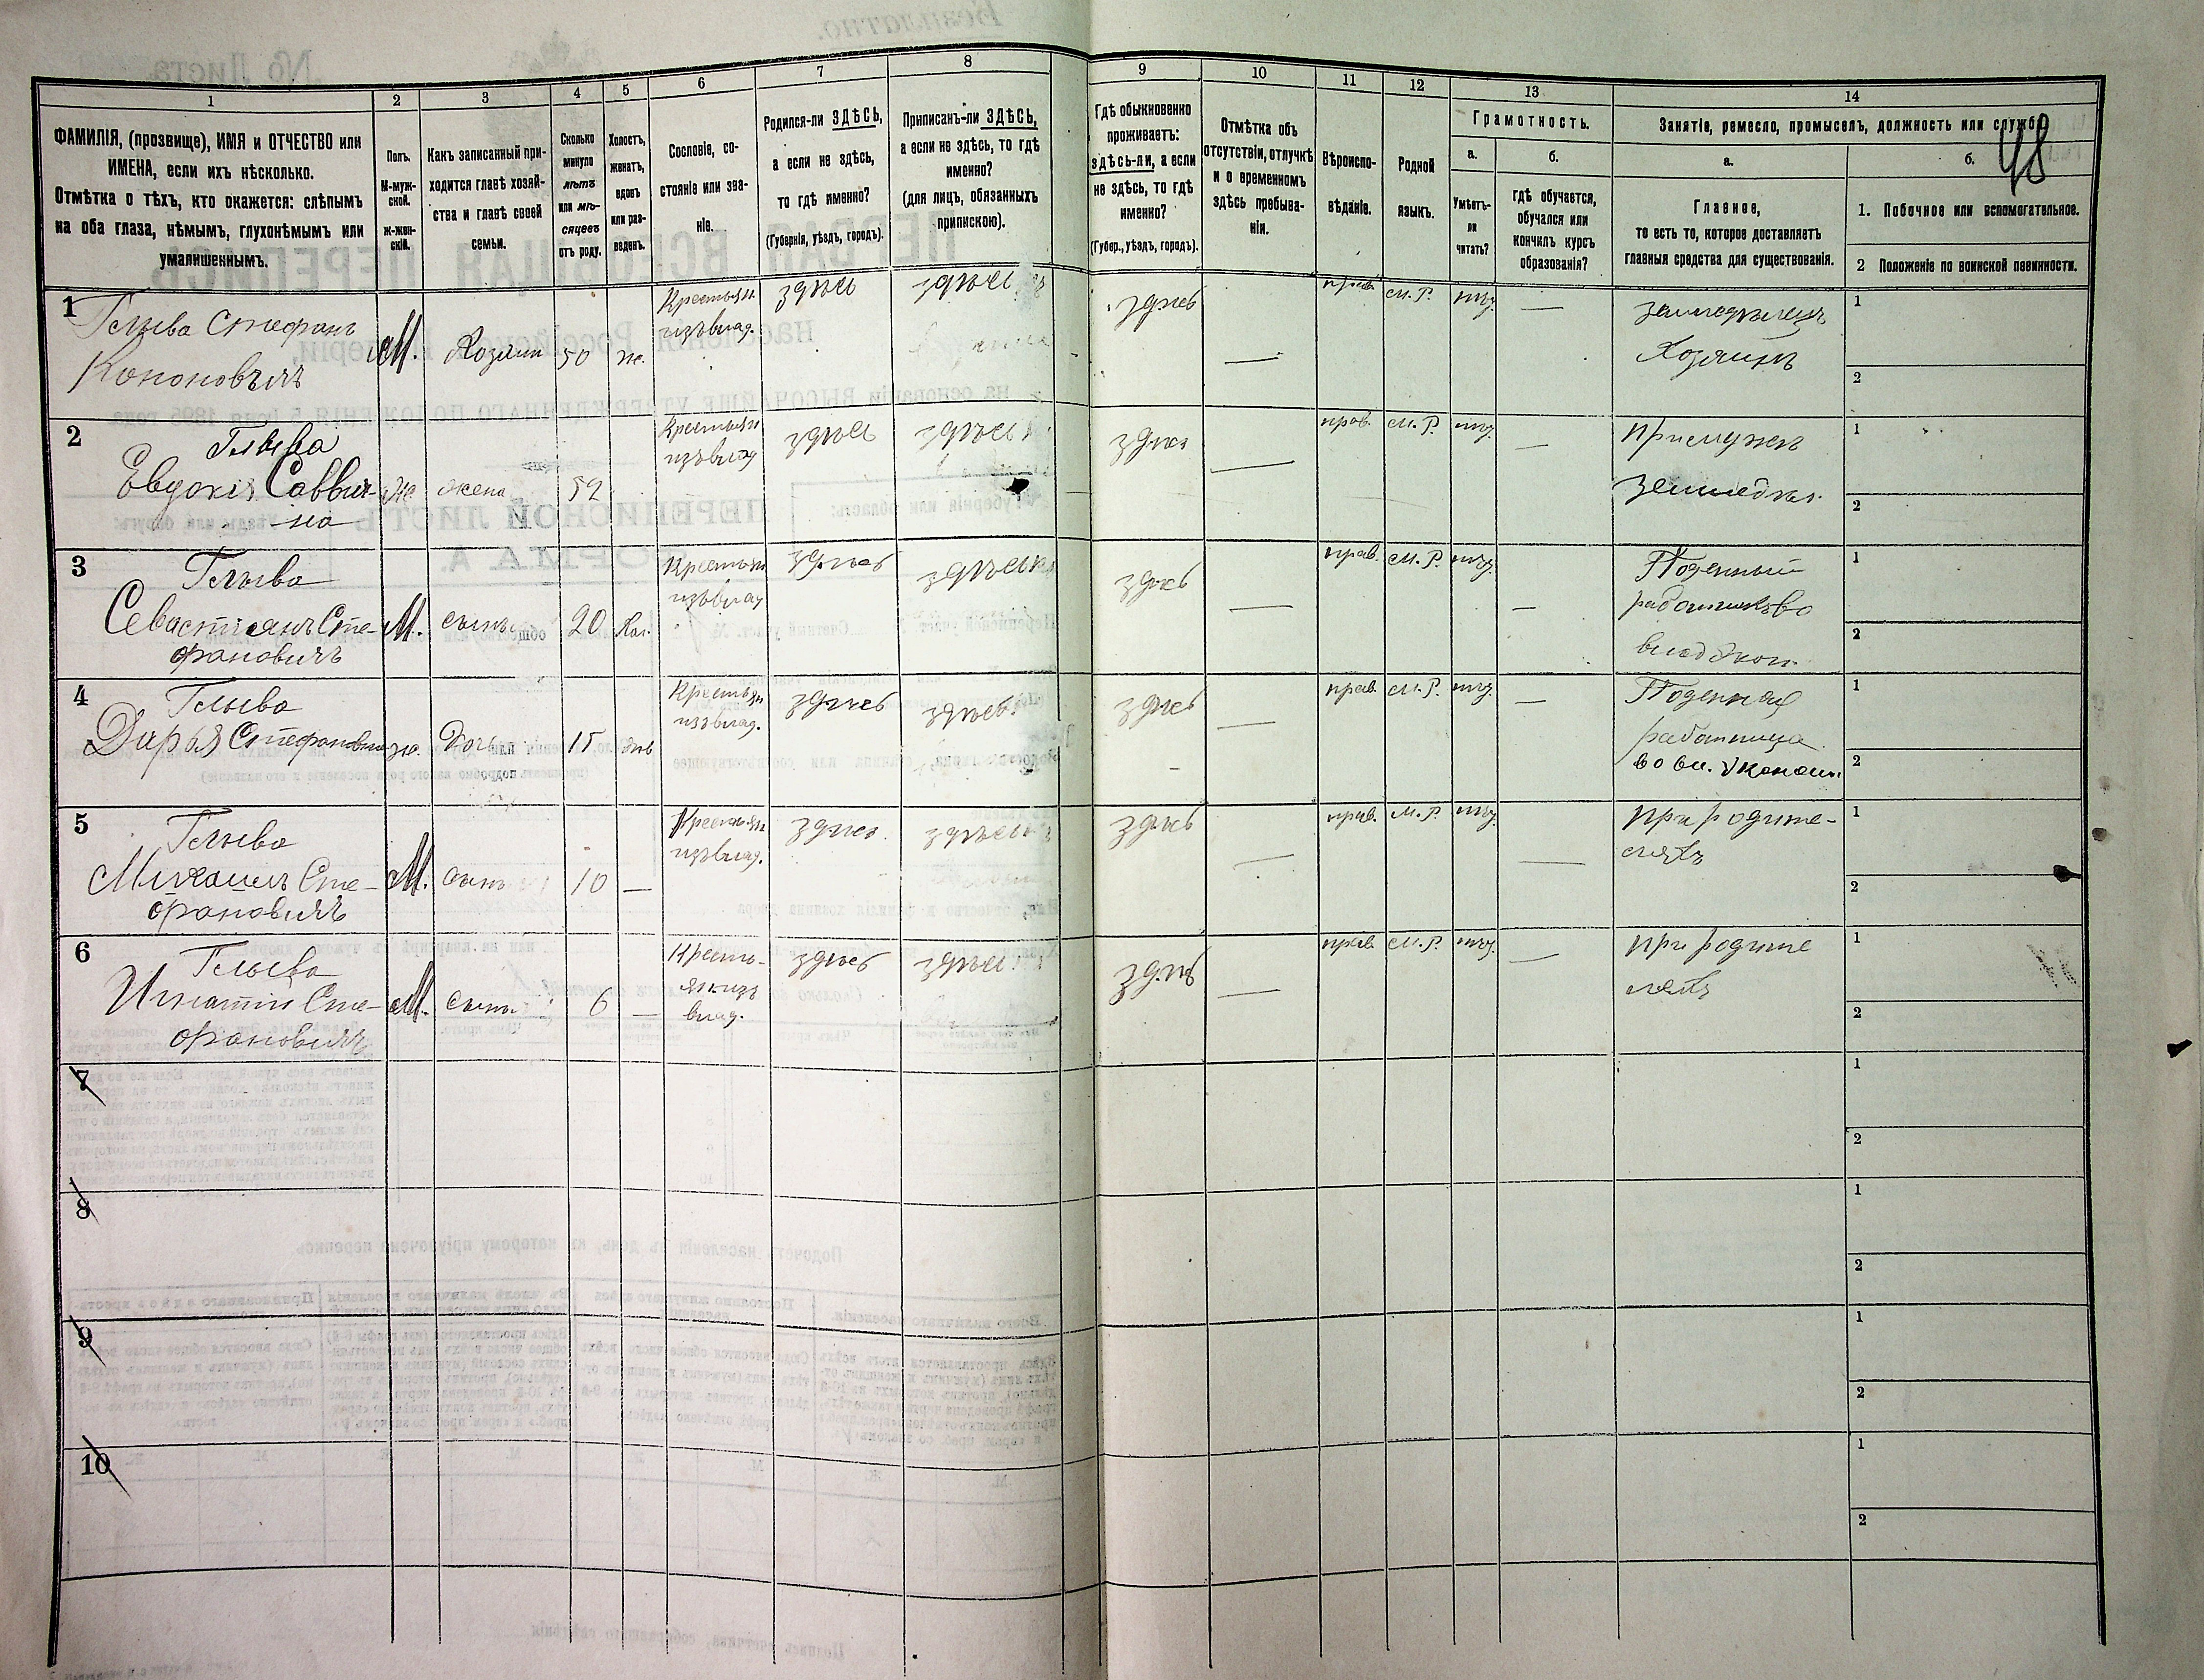 48
1
2
3
4
5
6
7
8
9
10
11
12
13
14
ФАМИЛІЯ, (прозвище), ИМЯ и ОТЧЕСТВО или
ИМЕНА, если ихъ нѣсколько.
Отмѣтка о тѣхъ, кто окажется: слѣпымъ
на оба глаза, нѣмымъ, глухонѣмымъ или
умалишеннымъ.
Полъ.
М-муж-
ской.
ж-жен-
скій.
Какъ записанный при-
ходится главѣ хозяй-
ства и главѣ своей
семьи.
Сколько
минуло
лѣтъ
или мѣ-
сяцевъ
отъ роду.
Холостъ,
женатъ,
вдовъ
или раз-
веденъ.
Сословіе, со-
стояніе или зва-
ніе.
Родился-ли ЗДѢСЬ,
а если не здѣсь,
то гдѣ именно?
(Губернія, уѣздъ, городъ).
Приписанъ-ли ЗДѢСЬ,
а если не здѣсь, то гдѣ
именно?
(для лицъ, обязанныхъ
припискою).
Гдѣ обыкновенно
проживаетъ:
здѣсь-ли, а если
не здѣсь, то гдѣ
именно?
(Губер., уѣздъ, городъ).
Отмѣтка объ
отсутствіи, отлучкѣ
и о временномъ
здѣсь пребыва-
ніи.
Вѣроиспо-
вѣданіе.
Родной
языкъ.
Грамотность.
а.
б.
Умѣетъ-
ли
читать?
гдѣ обучается,
обучался или
кончилъ курсъ
образованія?
Занятіе, ремесло, промыселъ, должность или служба.
а.
б.
Главное,
то есть то, которое доставляетъ
главныя средства для существованія.
1. Побочное или вспомогательное.
2 Положеніе по воинской повинности.
1
Глыва Стефанъ
Кононовичъ
М.
Хозяин
50
ж.
Крестьян
изъ влад.
здѣсь
здѣсь
здѣсь
—
прав.
м. Р.
—
земледѣлецъ
Хозяинъ
1
2
2
Глыва
Евдокія Саввич-
на
ж
жена
52
Крестьян
изъ влад
здѣсь
здѣсь
здѣсь
—
прав.
м. Р.
—
при мужѣ
земледѣл.
1
2
3
Глыва
Севастіянъ Сте-
фановичъ
М.
сынъ
20
Хол.
Крестьян
изъ влад
здѣсь
здѣсь
здѣсь
—
прав.
м. Р.
—
Поденный
работник во
влад Экон.
1
2
4
Глыва
Дарья Стефановна
ж.
Дочь
15
дѣв
Крестьян
изъ влад.
здѣсь
здѣсь
здѣсь
—
прав.
м. Р.
—
Поденная
работница
во вл. Эконом.
1
2
5
Глыва
Михаилъ Сте-
фановичъ
М.
сынъ
10
—
Крестьян
изъ влад.
здѣсь
здѣсь
здѣсь
—
прав.
м. Р.
—
при родите-
ляхъ
1
2
6
Глыва
Игнатій Сте-
фановичъ
М.
сынъ
6
—
Кресть-
ян изъ
влад.
здѣсь
здѣсь
здѣсь
—
прав.
м. Р.
—
при родите
ляхъ
1
2
7
1
2
8
1
2
9
1
2
10
1
2